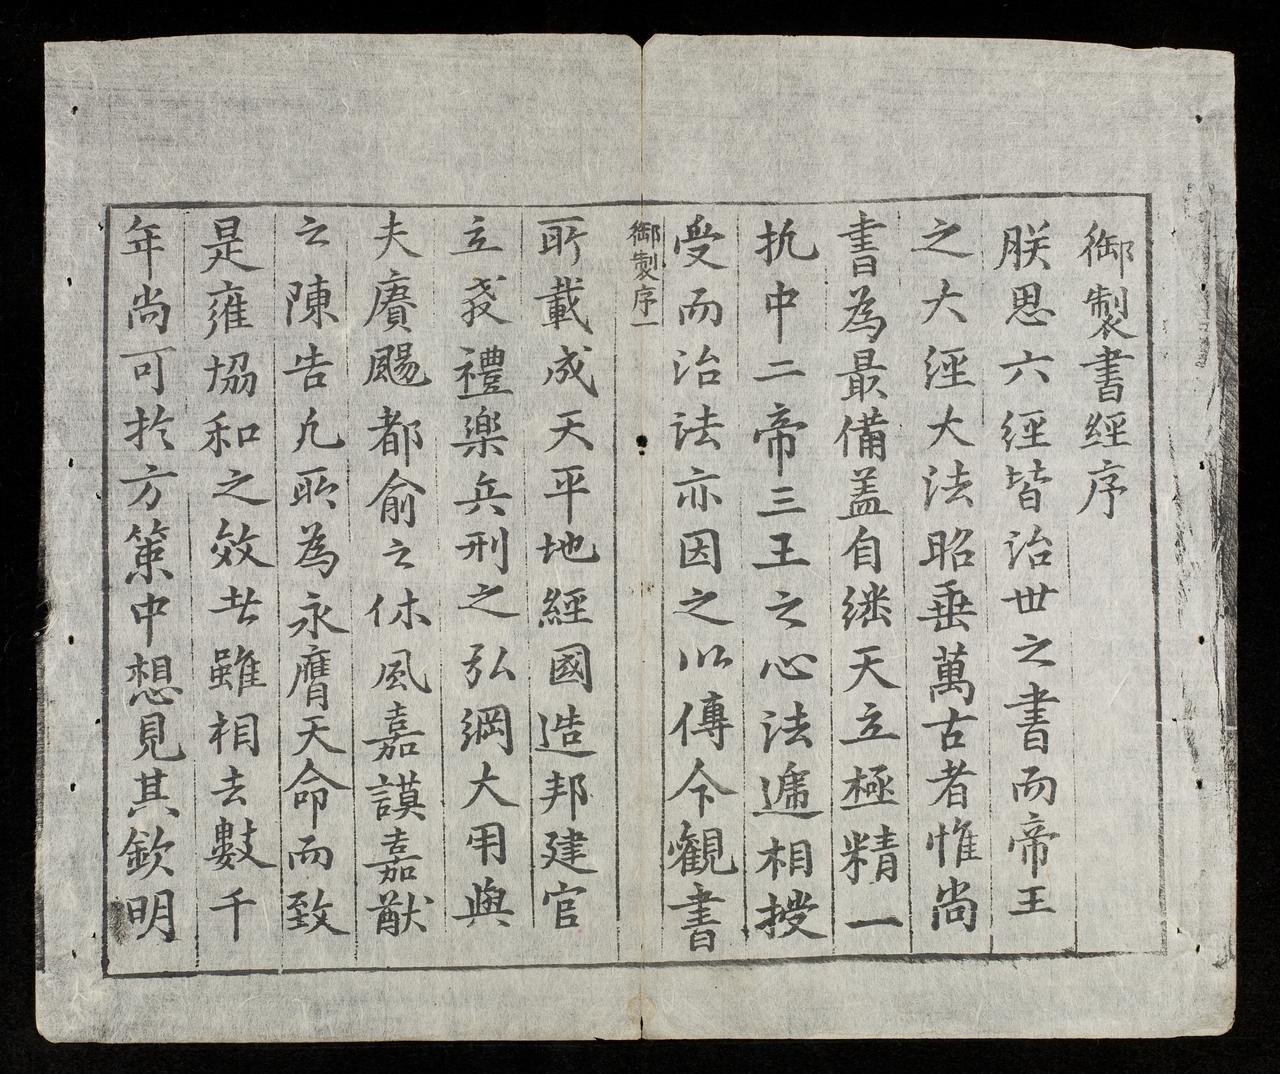 御製書經序
朕思六經皆治世之書而帝王
之大經大法昭垂萬古者惟尚
書為最備盖自繼天立極精一
执中二帝三王之心法遞相授
受而治法亦因之以傳今觀書
御製序一
所載成天平地經國造邦建官
立教禮楽兵刑之弘綱大用與
夫賡颺都俞之休風嘉謨嘉猷
之陳告凢所為永膺天命而致
是雍恊和之效者雖相去數千
年尚可於方策中想見其欽明